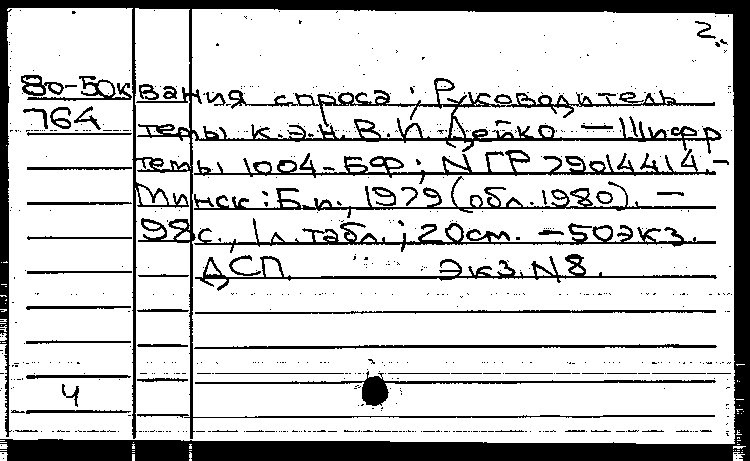 2.
80-50к вания спроса; Руководитель
764 темы к.э.н. В.И. Дейко. — Шифр
темы 1004-БФ; N ГР 79014414. —
Минск: Б.и., 1979 (обл. 1980). —
98с., 1 л. табл.; 20см. — 50экз.
ДСП. Экз. N8.
4